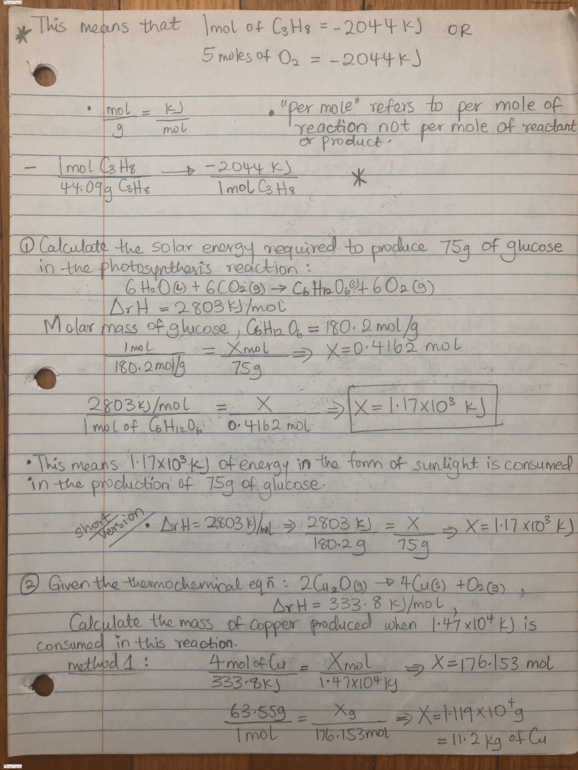 * This means that 1mol of C3H8 = -2044 KJ OR
5 moles of O2 = -2044 KJ
• mol/g = KJ/mol • "per mole" refers to per mole of
reaction not per mole of reactant
or product.
- 1mol C3H8/44.09g C3H8 → -2044 KJ/1mol C3H8 *
① Calculate the solar energy required to produce 75g of glucose
in the photosynthesis reaction:
6 H2O(l) + 6CO2(g) → C6H12O6(s) + 6O2(g)
ΔrH = 2803 KJ/mol
Molar mass of glucose, C6H12O6 = 180.2 mol/g
1mol/180.2mol/g = Xmol/75g ⇒ X=0.4162 mol
2803 KJ/mol/1mol of C6H12O6 = X/0.4162 mol ⇒ X = 1.17x10³ KJ
• This means 1.17x10³ KJ of energy in the form of sunlight is consumed
in the production of 75g of glucose.
short version • ΔrH = 2803 KJ/mol ⇒ 2803 KJ/180.2g = X/75g ⇒ X = 1.17x10³ KJ
② Given the thermochemical eqñ: 2Cu2O(s) → 4Cu(s) + O2(g),
ΔrH = 333.8 KJ/mol,
Calculate the mass of copper produced when 1.47x10⁴ KJ is
consumed in this reaction.
method 1: 4 mol of Cu/333.8KJ = Xmol/1.47x10⁴KJ ⇒ X=176.153 mol
63.55g/1mol = Xg/176.153mol ⇒ X=1.119x10⁴g
= 11.2 kg of Cu